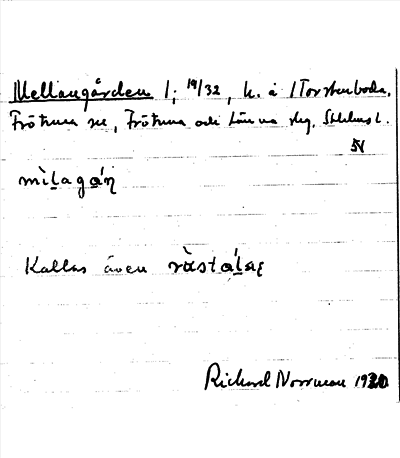 Mellangården 1; 19/32, h. å 1 Torstenboda,
Frötuna sn, Frötuna och Länna skg, Sthlms l.
mìḷagạ́ṇ
Kallas även
Richard Norrman 1920